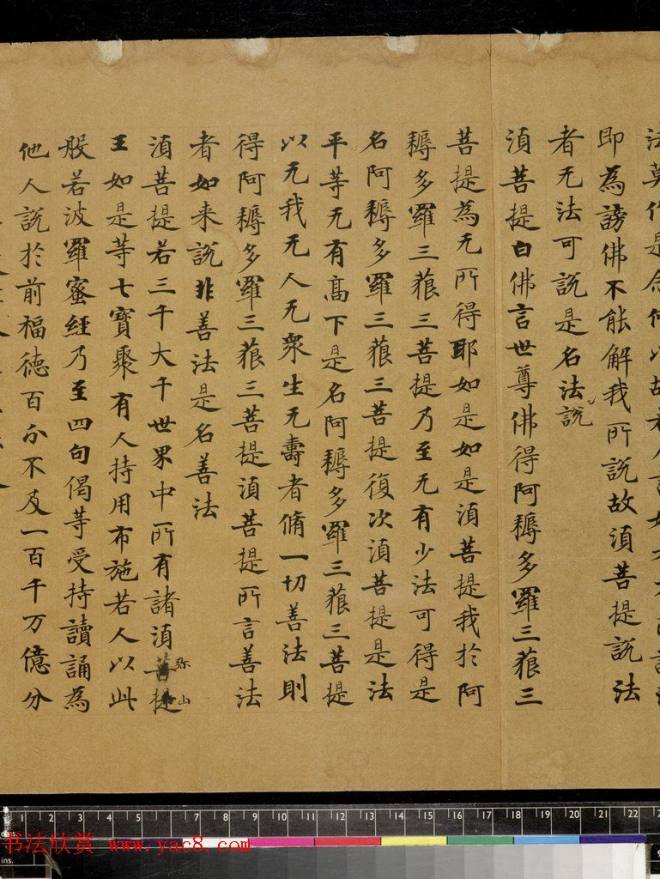 法莫作是念何以故若人言如
即為謗佛不能解我所說故湏菩提說法
者无法可說是名法說
湏菩提白佛言世尊佛得阿耨多羅三藐三
菩提為无所得耶如是如是湏菩提我於阿
耨多羅三藐三菩提乃至无有少法可得是
名阿耨多羅三藐三菩提復次湏菩提是法
平等无有髙下是名阿耨多羅三藐三菩提
以无我无人无衆生无壽者脩一切善法則
得阿耨多羅三藐三菩提湏菩提所言善法
者如来說非善法是名善法
湏菩提若三千大千世界中所有諸湏菩提弥山
王如是等七寶聚有人持用布施若人以此
般若波羅蜜經乃至四句偈等受持讀誦為
他人說於前福德百分不及一百千万億分
1 2 3 4 5 6 7 8 9 10 11 12 13 14 15 16 17 18 19 20 21 22
书法欣赏 www.yac8.com
ins.